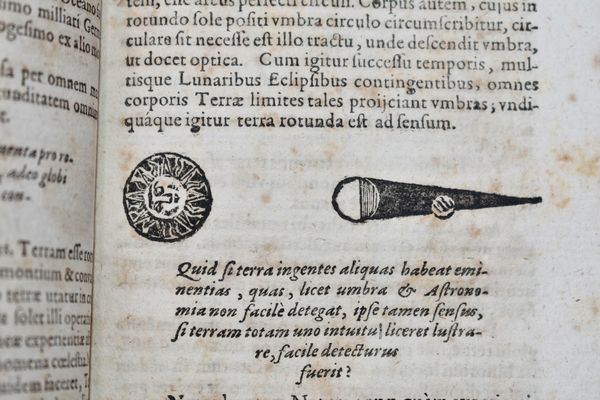 Oceano
simo milliari Ger
ogesimo ex alio mo
sa per omnem m
unditatem omnium
adeo globi
con-
at. Terram esse
montium & con
terræ utatur in
solet illi opera
experientiæ
nomena cœlestia.
uidem faceret, T
tem, que arcus perfecti circuli. Corpus autem, cuius in
rotundo sole positi vmbra circulo circumscribitur, cir-
culare sit necesse est illo tractu, unde descendit vmbra,
ut docet optica. Cum igitur successu temporis, mul-
tisque Lunaribus Eclipsibus contingentibus, omnes
corporis Terræ limites tales proijciant vmbras; vndi-
quáque igitur terra rotunda est ad sensum.
Quid si terra ingentes aliquas habeat emi-
nentias, quas, licet umbra & Astrono-
mia non facilè detegat, ipse tamen sensus,
si terram totam uno intuitu liceret lustra-
re, facile detecturus
fuerit?